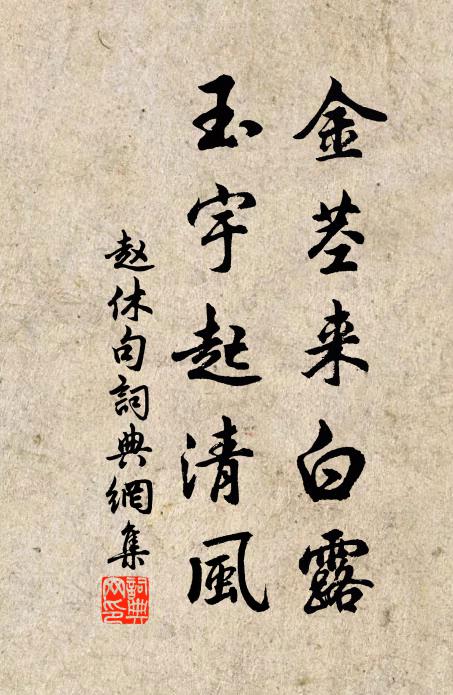 金茎来白露
玉宇起清風
赵休句詞典網集
詞典
网印